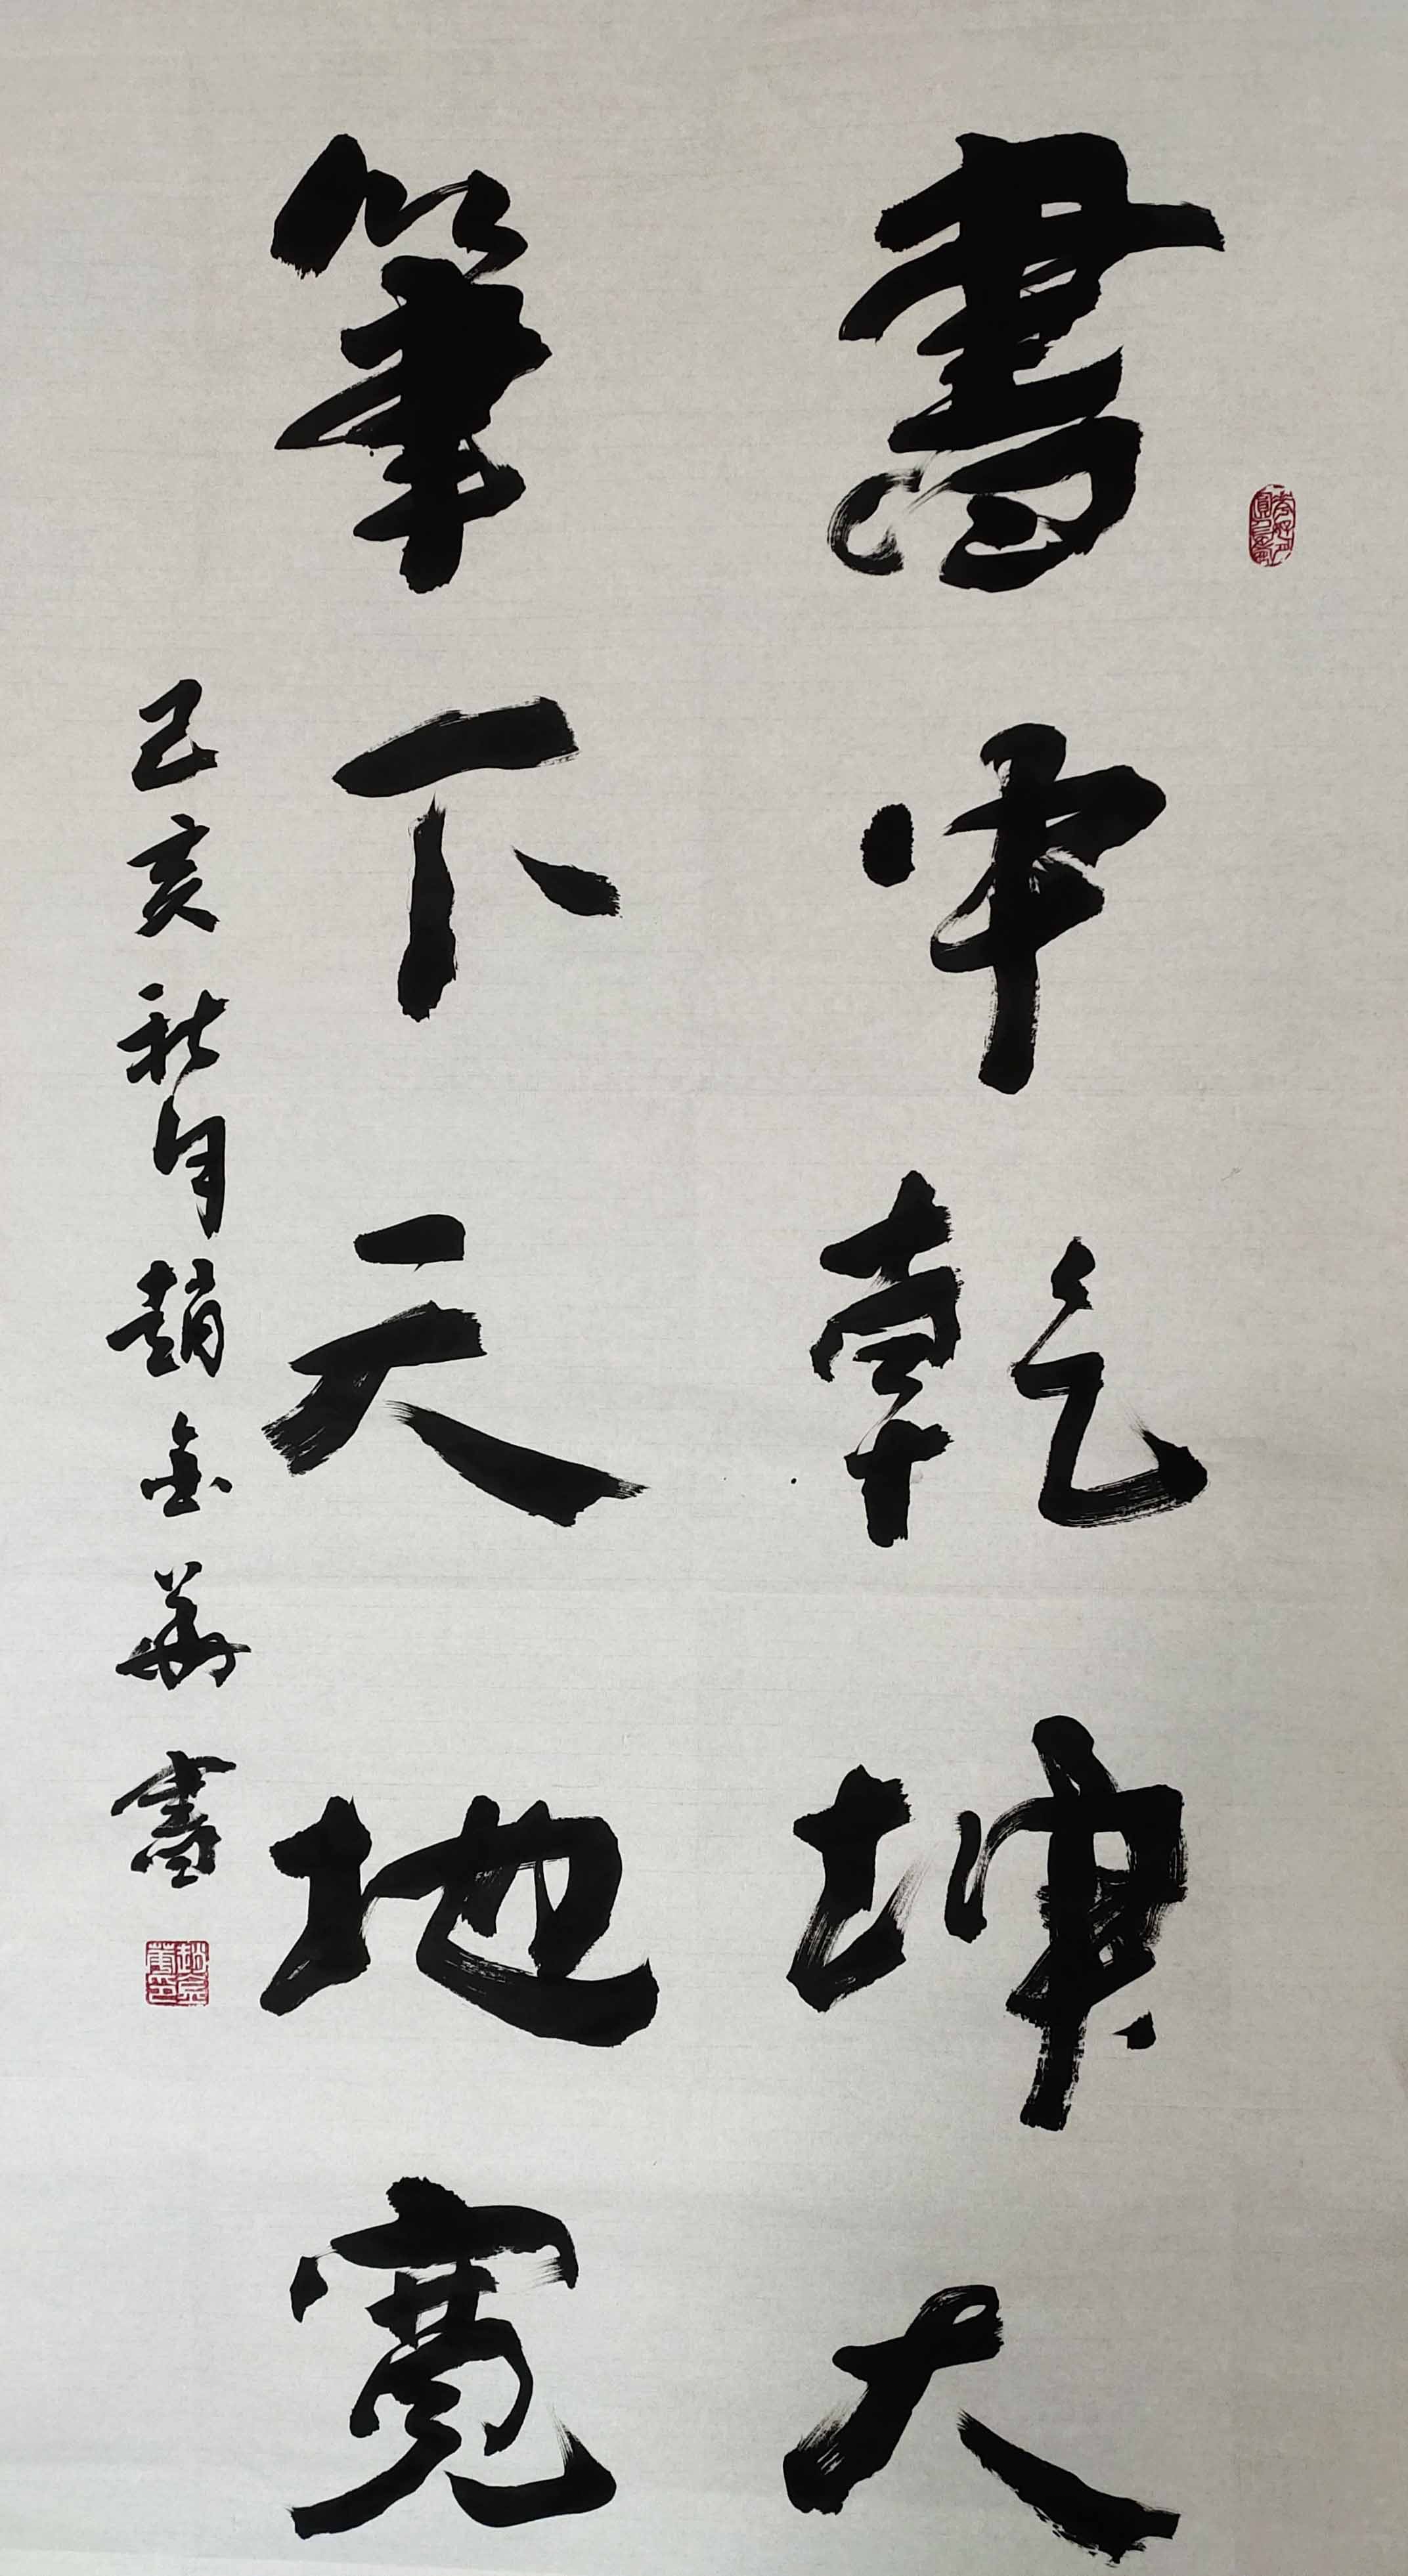 書中乾坤大
筆下天地寬
己亥秋月趙金華書